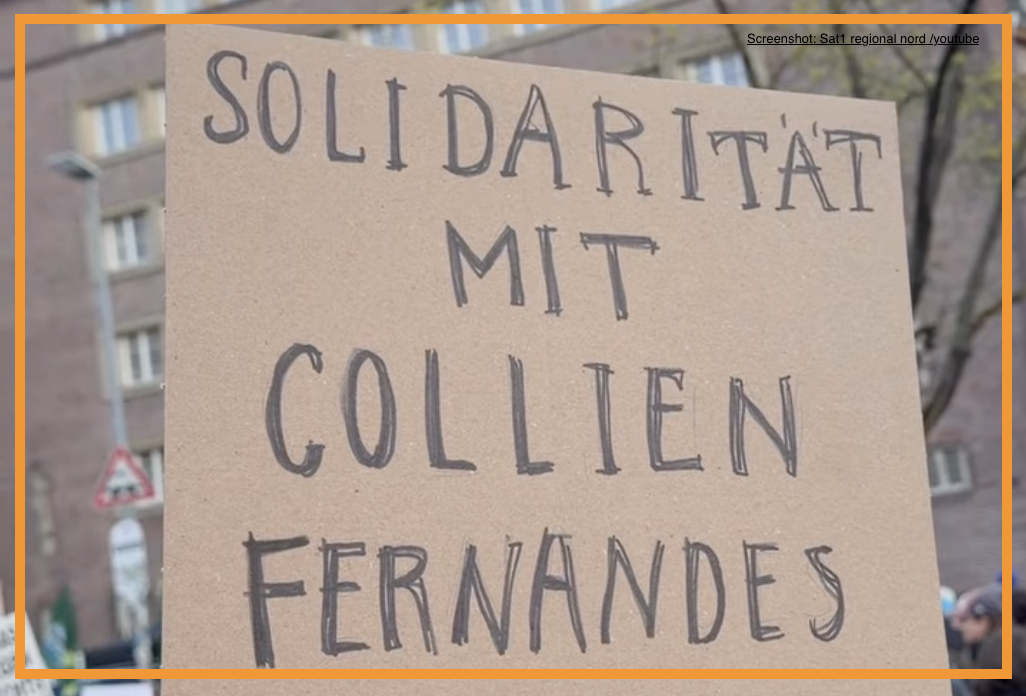 Screenshot: Sat1 regional nord /youtube
SOLIDARITÄT
MIT
COLLIEN
FERNANDES